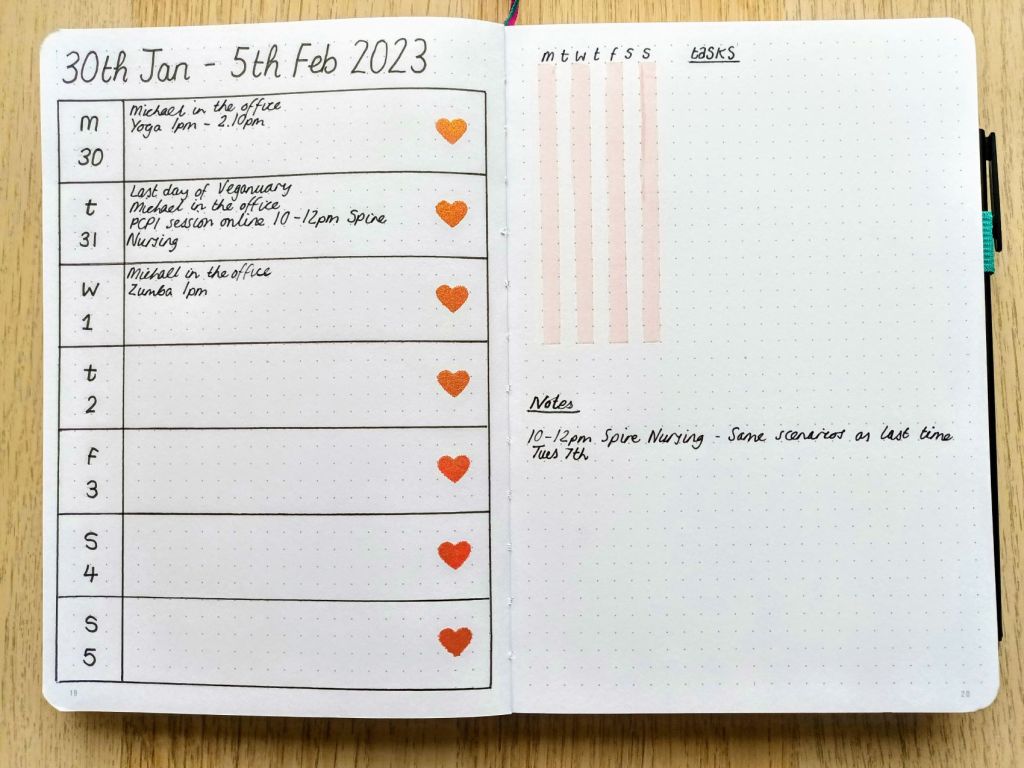 30th Jan - 5th Feb 2023
m
30
Michael in the office
Yoga 1pm - 2.10pm
t
31
Last day of Veganuary
Michael in the office
PCPI session online 10-12pm Spire
Nursing
W
1
Michael in the office
Zumba 1pm
t
2
F
3
S
4
S
5
19
m t w t f s s
tasks
Notes
10-12pm Spire Nursing - Same scenarios as last time
Tues 7th
20